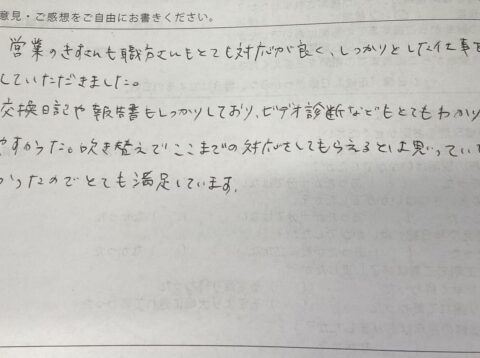 意見・ご感想をご自由にお書きください。
営業のきすさんも職方さんもとても対応が良く、しっかりとした仕事を
していただきました。
交換日記や報告書もしっかりしており、ビデオ診断などもとてもわかり
やすかった。吹き替えでここまでの対応をしてもらえるとは思っていな
かったのでとても満足しています。